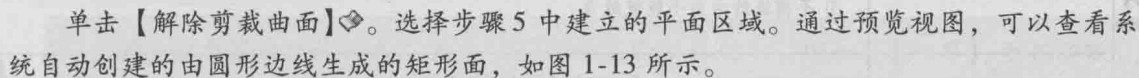 单击【解除剪裁曲面】。选择步骤 5 中建立的平面区域。通过预览视图，可以查看系
统自动创建的由圆形边线生成的矩形面，如图 1-13 所示。